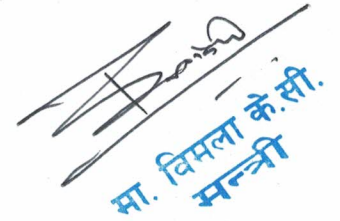 मा. विमला के.सी.
मन्त्री